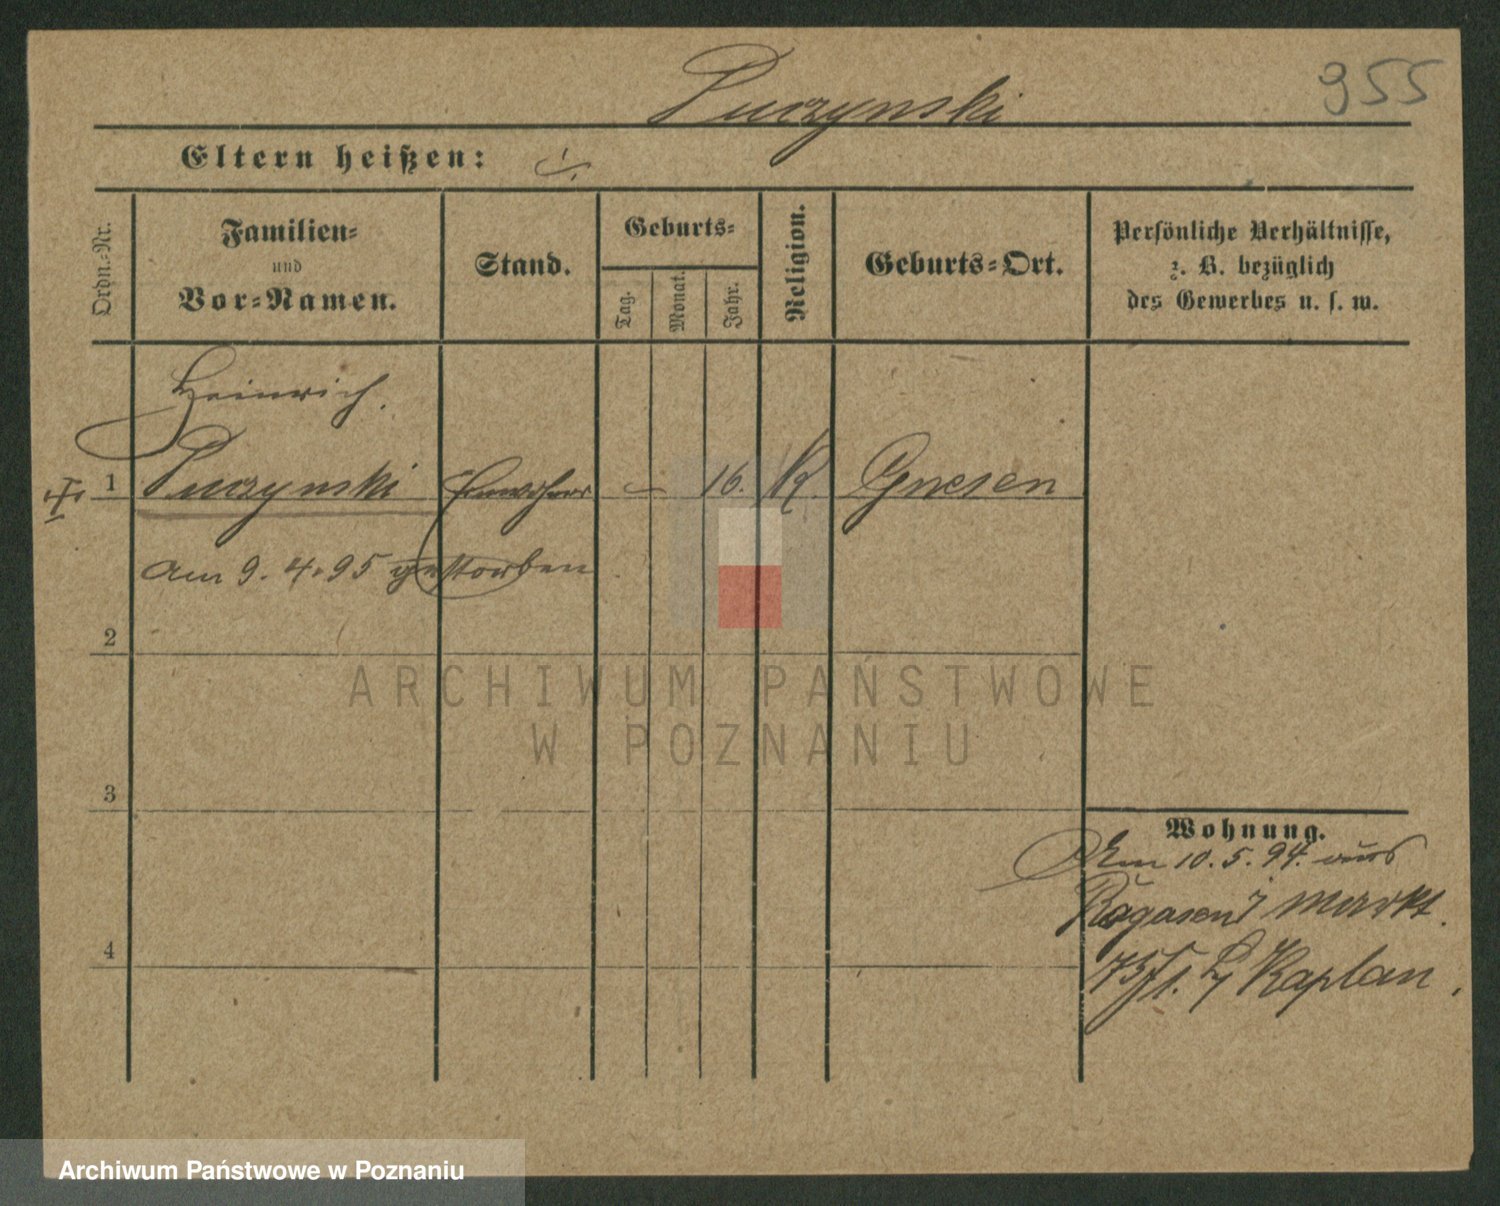 Puczynski
955
Eltern heißen:
Ordn.-Nr.
Familien-
und
Vor-Namen.
Stand.
Geburts-
Tag.
Monat.
Jahr.
Religion.
Geburts-Ort.
Persönliche Verhältnisse,
z. B. bezüglich
des Gewerbes u. s. w.
Heinrich
1 Puczynski 16. K. Gnesen
am 9.4.95 gestorben
2
ARCHIWUM PAŃSTWOWE
W POZNANIU
3
4
Wohnung.
Am 10.5.94. aus
Rogasen Markt
Kaplan
Archiwum Państwowe w Poznaniu